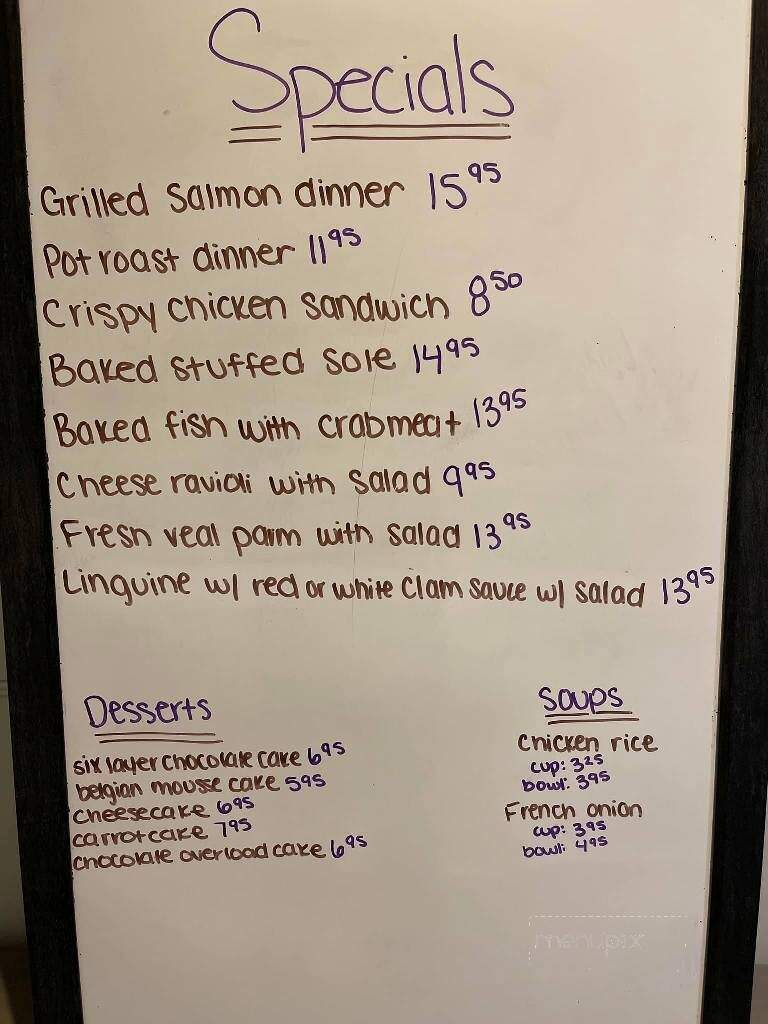 Specials
Grilled salmon dinner 15 95
Pot roast dinner 11 95
Crispy chicken sandwich 8 50
Baked stuffed sole 14 95
Baked fish with crabmeat 13 95
Cheese ravioli with salad 9 95
Fresh veal parm with salad 13 95
Linguine w/ red or white clam sauce w/ salad 13 95
Desserts
six layer chocolate cake 6 95
belgian mousse cake 5 95
cheesecake 6 95
carrot cake 7 95
chocolate overload cake 6 95
Soups
Chicken rice
cup: 3 25
bowl: 3 95
French onion
cup: 3 95
bowl: 4 95
menupix